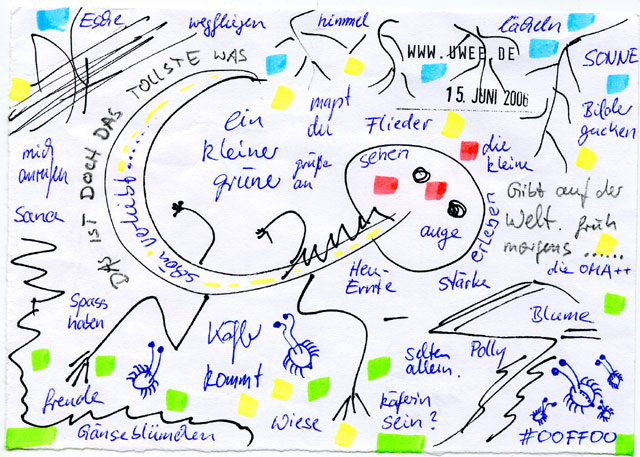 Esche
wegfliegen
himmel
lächeln
WWW.UWEE.DE
15. JUNI 2006
SONNE
DAS IST DOCH DAS TOLLSTE WAS
ein
kleiner
grüne
magst
du
grüße
an
Flieder
sehen
die
kleine
Bilder
gucken
mich
anrufen
Sanca
schön verliebt......
auge
erleben
Gibt auf der
Welt. früh
morgens ......
die OMA++
Heu-
Ernte
Stärke
Spass
haben
Blume
Käfer
kommt
selten
allein.
Polly
freude
Gänseblümchen
Wiese
käferin
sein?
#00FF00